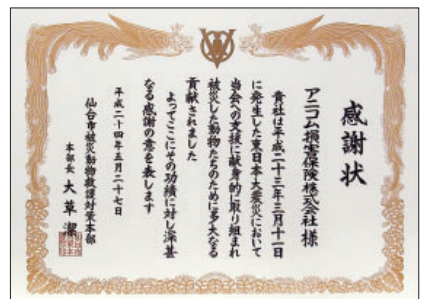 感謝状
アニコム損害保険株式会社 様
貴社は平成二十三年三月十一日
に発生した東日本大震災において
当会への支援に献身的に取り組まれ
被災した動物たちのために多大なる
貢献されました
よってここにその功績に対し深甚
なる感謝の意を表します
平成二十四年五月二十七日
仙台市被災動物救護対策本部
本部長 大草 潔